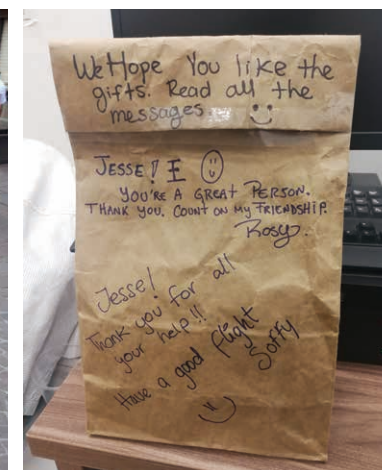 We Hope You like the
gifts. Read all the
messages.
JESSE! I
YOU'RE A GREAT PERSON.
THANK YOU. COUNT ON MY FRIENDSHIP.
Rosy.
Jesse!
Thank you for all
your help!!
Have a good flight
Soffy